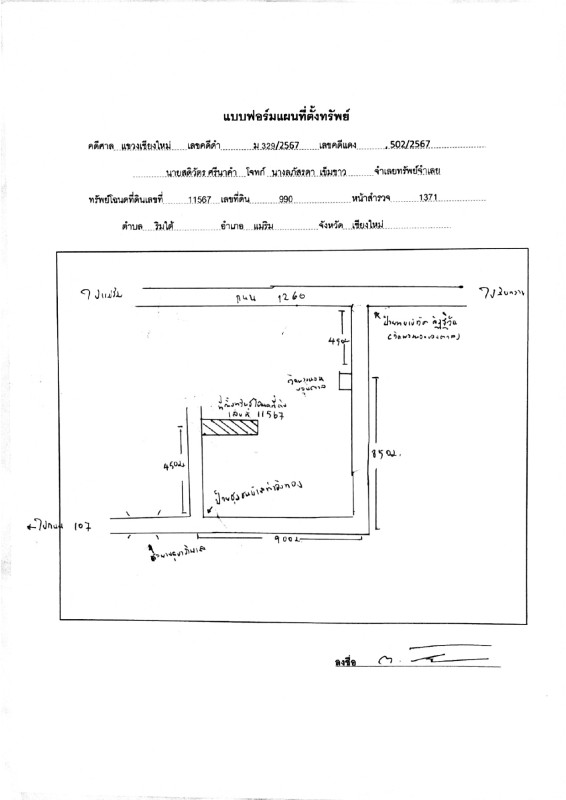 แบบฟอร์มแผนที่ตั้งทรัพย์
คดีศาล แขวงเชียงใหม่ เลขคดีดำ ม.329/2567 เลขคดีแดง .502/2567
นายสดิวัตร ศรีนาคำ โจทก์ นางลภัสรดา เข็มขาว จำเลยทรัพย์จำเลย
ทรัพย์โฉนดที่ดินเลขที่ 11567 เลขที่ดิน 990 หน้าสำรวจ 1371
ตำบล ริมใต้ อำเภอ แม่ริม จังหวัด เชียงใหม่
ไปแม่ริม
ถนน 1260
ไป
ป้าย
450ม
ที่ตั้งทรัพย์โฉนดที่ดิน
เลขที่ 11567
450ม
850ม.
ป้ายชุมชน
ไปถนน 107
900ม
ลงชื่อ